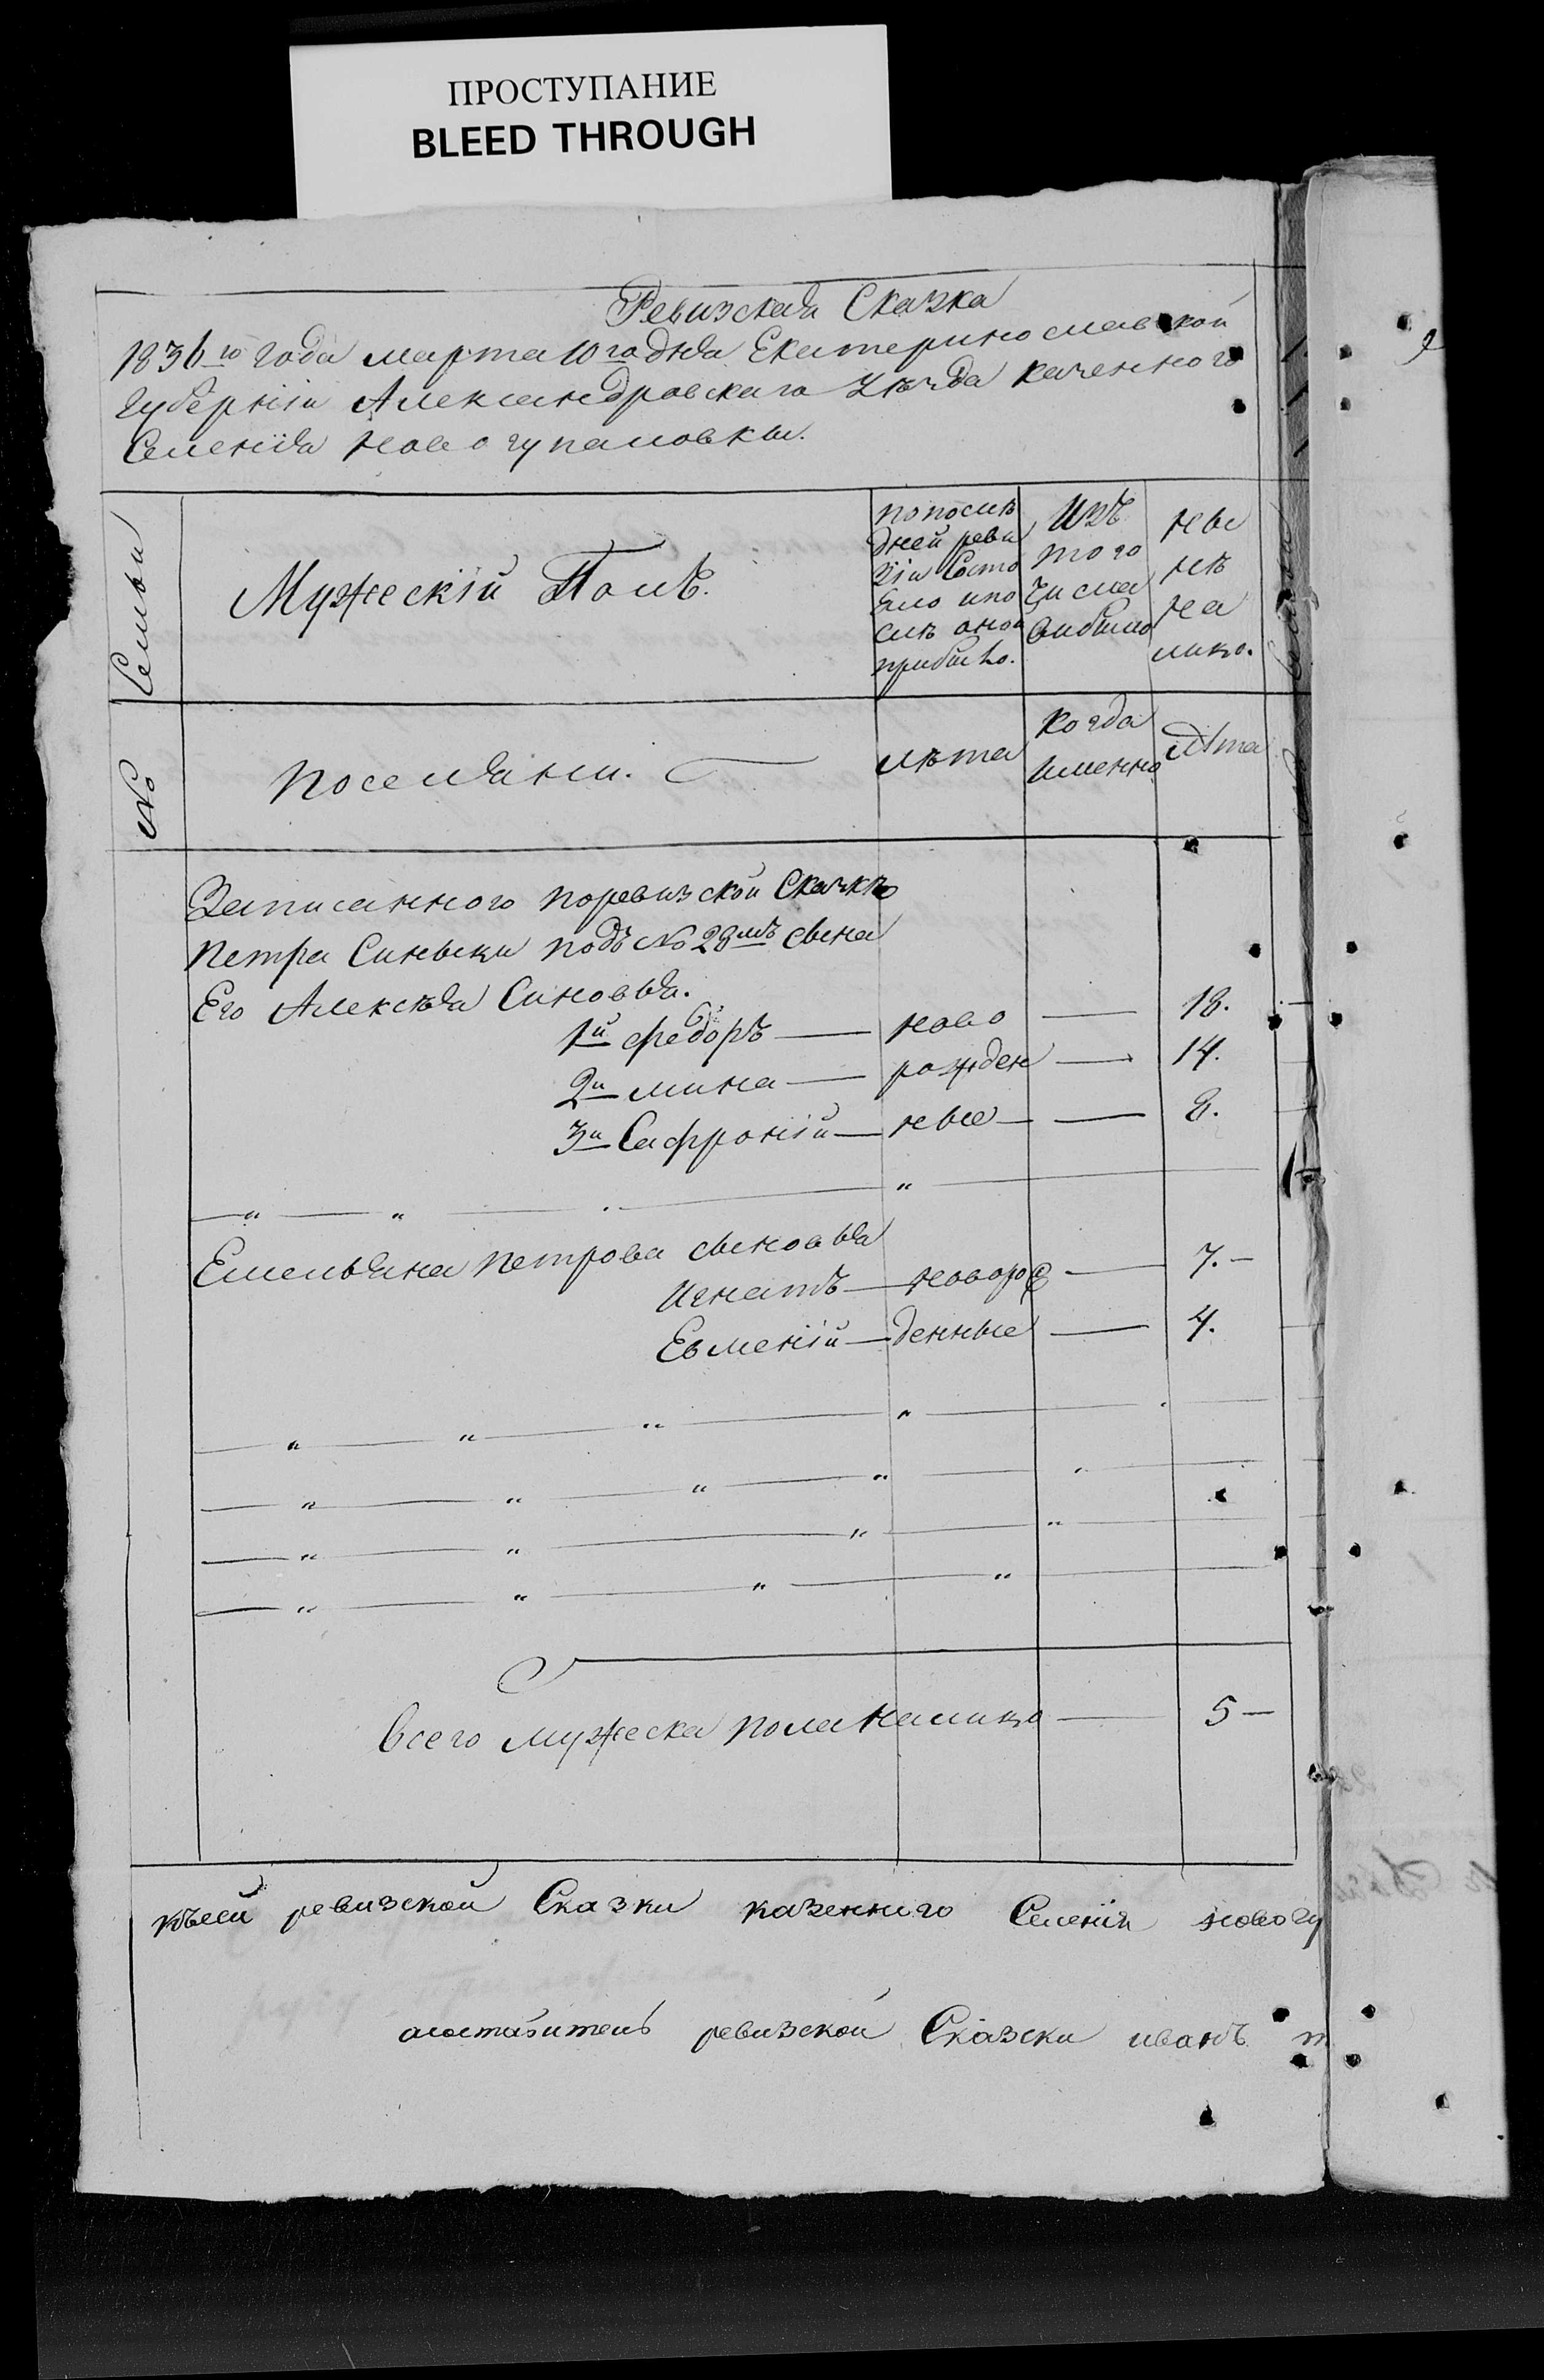 ПРОСТУПАНИЕ
BLEED THROUGH
Ревизская Сказка
1836го года марта 10го дня Екатеринославской
Губерніи Александровскаго уѣзда казенного
Селенія новогупаловки.
№ Семьи
Мужескій Полъ.
по послѣ
дней реви
зіи Состо
яло и по
слѣ оной
прибыло.
Изъ
того
Числа
выбыло
ны
нѣ
на
лицо.
поселяни.
лѣта
когда
именно
Лѣта
Записанного поревизской Сказкѣ
Петра Синьски подъ № 28мъ сына
Его Алексѣя Синовья.
1й федоръ — ново — 18.
2й мина — рожден — 14.
3й Сафроній — ные — 8.
Емельяна петрова сыновья
Игнатъ — новорож — 7.—
Евменій — денные — 4.
всего мужеска пола налицо — 5 —
ревизской Сказки казенного Селенія новогу
ревизской Сказски иванъ